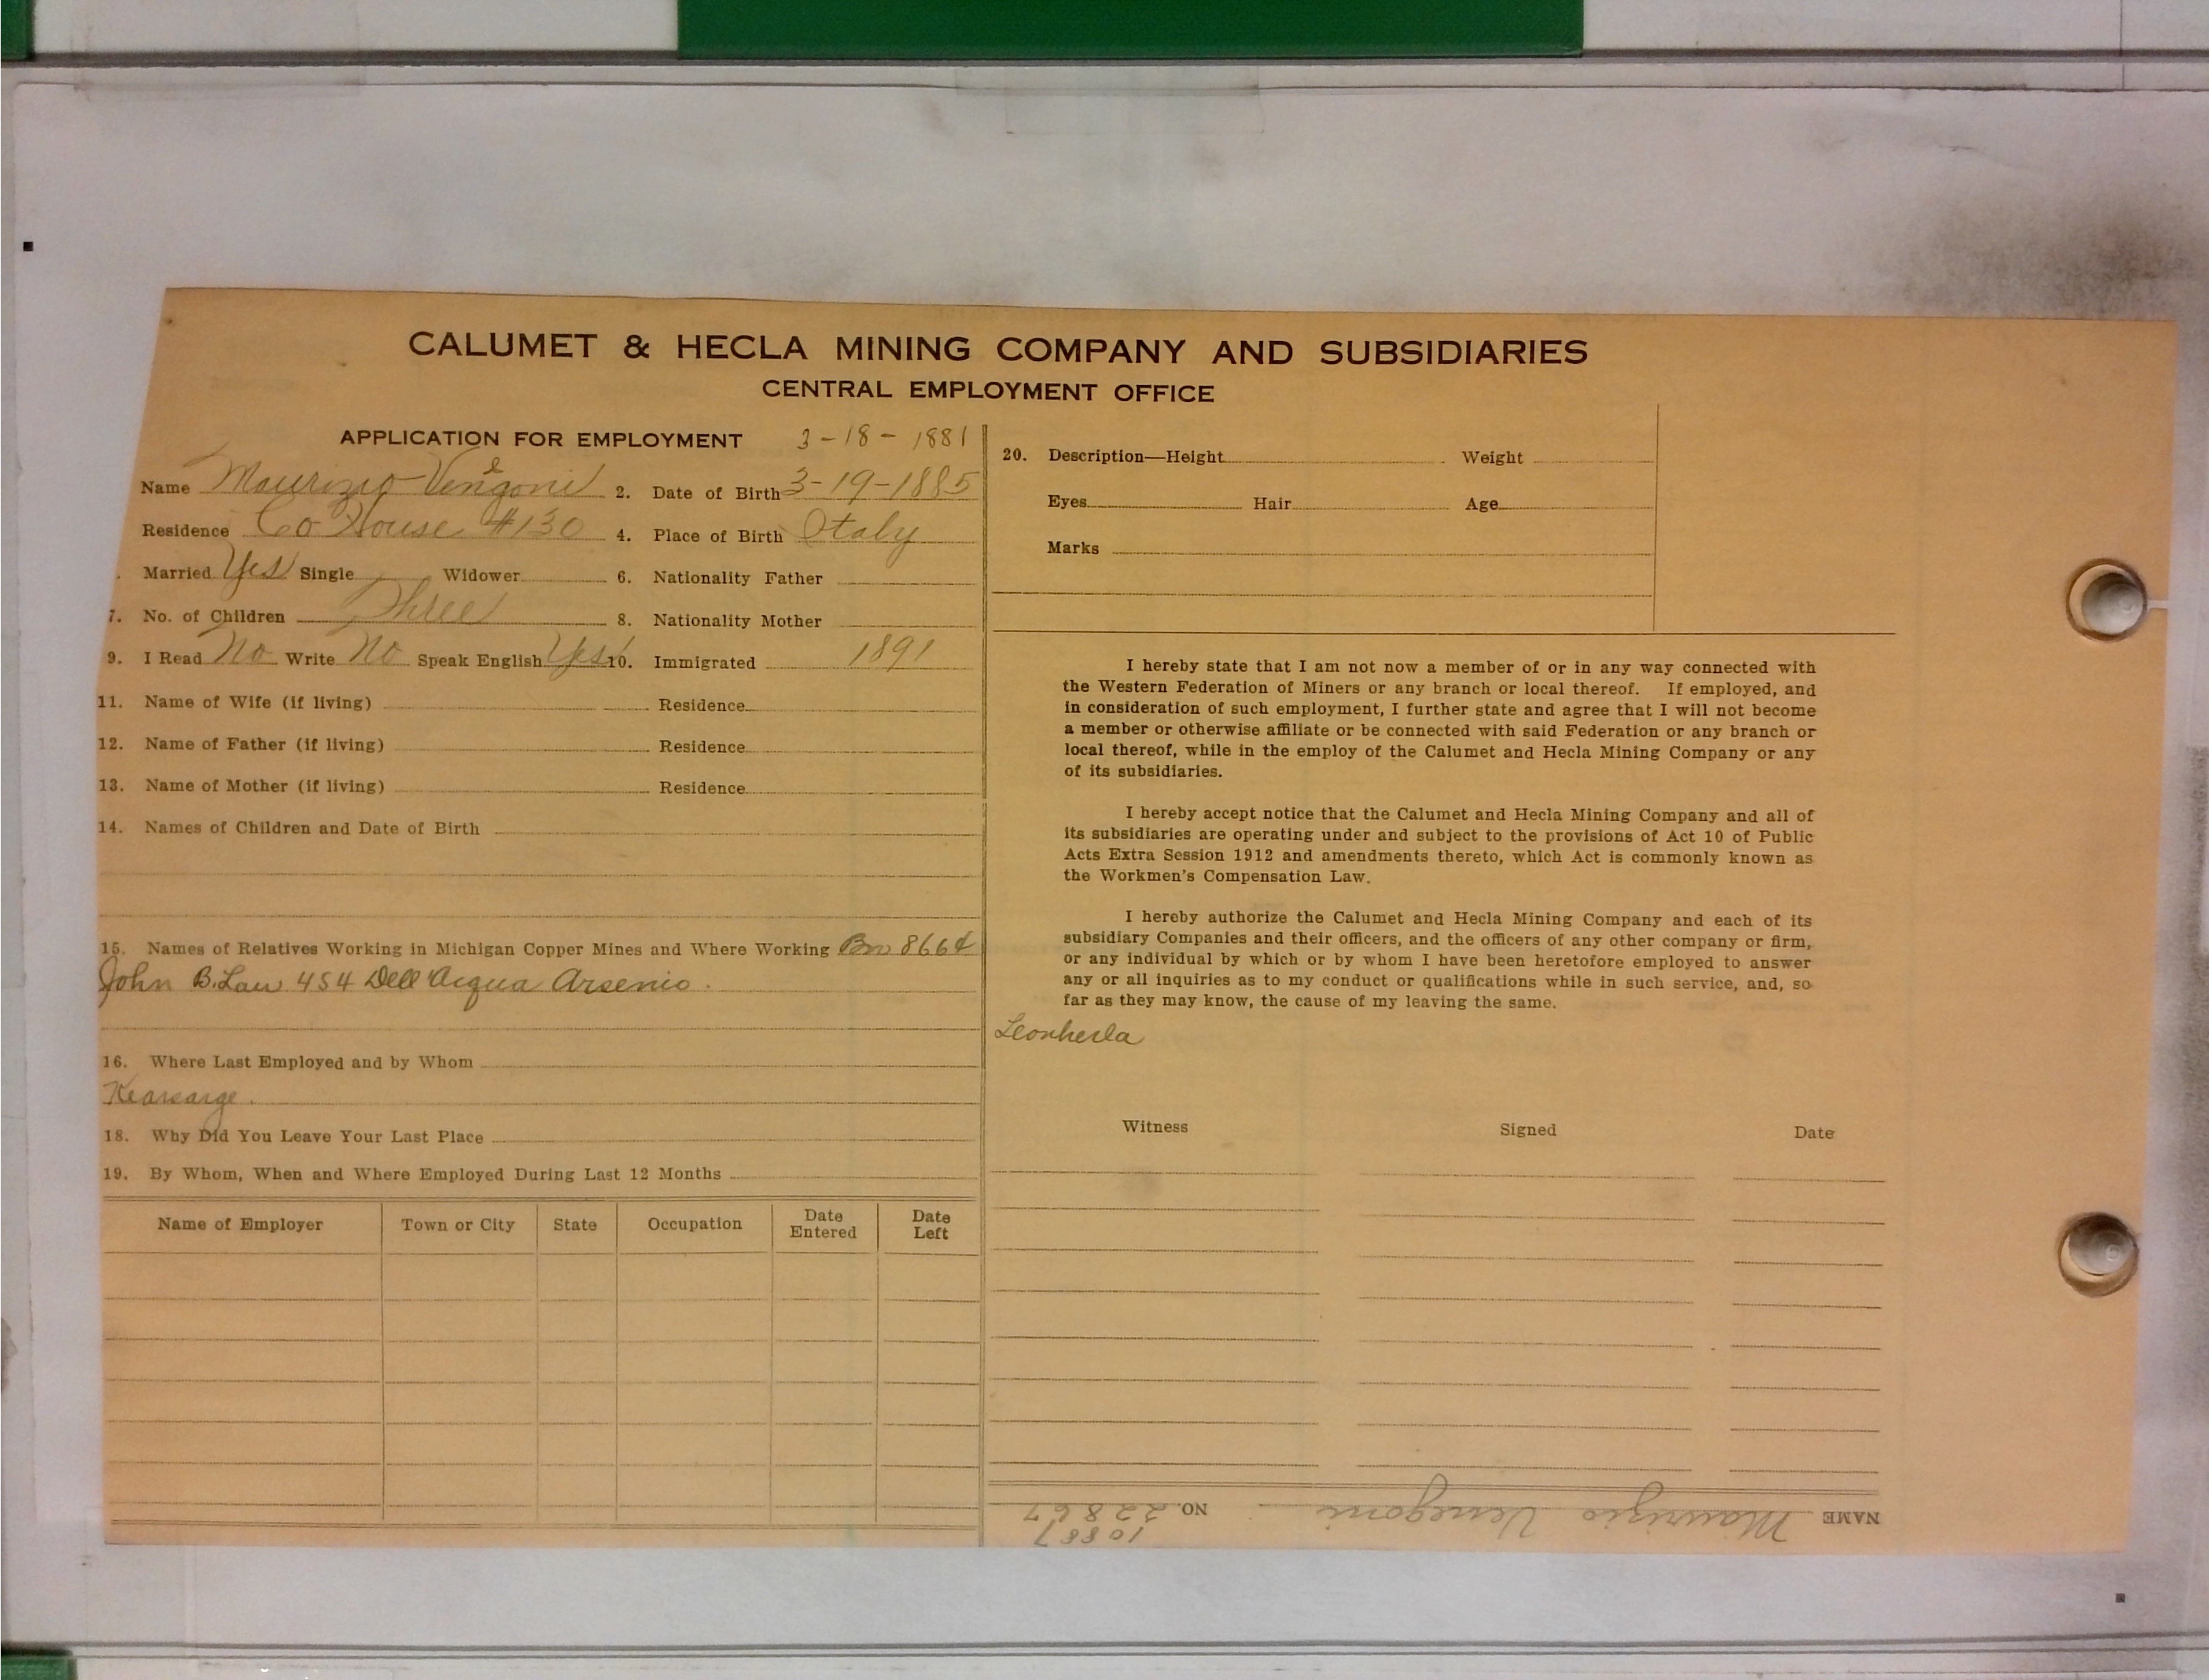 CALUMET & HECLA MINING COMPANY AND SUBSIDIARIES
CENTRAL EMPLOYMENT OFFICE
APPLICATION FOR EMPLOYMENT 3-18-1881
Name Maurizio Venegoni 2. Date of Birth 3-19-1885
Residence Co House #130 4. Place of Birth Italy
Married Yes Single Widower 6. Nationality Father
7. No. of Children Three 8. Nationality Mother
9. I Read No Write No Speak English Yes 10. Immigrated 1891
11. Name of Wife (if living) Residence
12. Name of Father (if living) Residence
13. Name of Mother (if living) Residence
14. Names of Children and Date of Birth
15. Names of Relatives Working in Michigan Copper Mines and Where Working Bro 8664
John B. Law 454 Dell Acqua Arsenio.
16. Where Last Employed and by Whom
Kearsarge.
18. Why Did You Leave Your Last Place
19. By Whom, When and Where Employed During Last 12 Months
Name of Employer Town or City State Occupation Date Entered Date Left
20. Description—Height Weight
Eyes Hair Age
Marks
I hereby state that I am not now a member of or in any way connected with
the Western Federation of Miners or any branch or local thereof. If employed, and
in consideration of such employment, I further state and agree that I will not become
a member or otherwise affiliate or be connected with said Federation or any branch or
local thereof, while in the employ of the Calumet and Hecla Mining Company or any
of its subsidiaries.
I hereby accept notice that the Calumet and Hecla Mining Company and all of
its subsidiaries are operating under and subject to the provisions of Act 10 of Public
Acts Extra Session 1912 and amendments thereto, which Act is commonly known as
the Workmen's Compensation Law.
I hereby authorize the Calumet and Hecla Mining Company and each of its
subsidiary Companies and their officers, and the officers of any other company or firm,
or any individual by which or by whom I have been heretofore employed to answer
any or all inquiries as to my conduct or qualifications while in such service, and, so
far as they may know, the cause of my leaving the same.
Witness Signed Date
NAME Maurizio Venegoni NO. 22867
10887